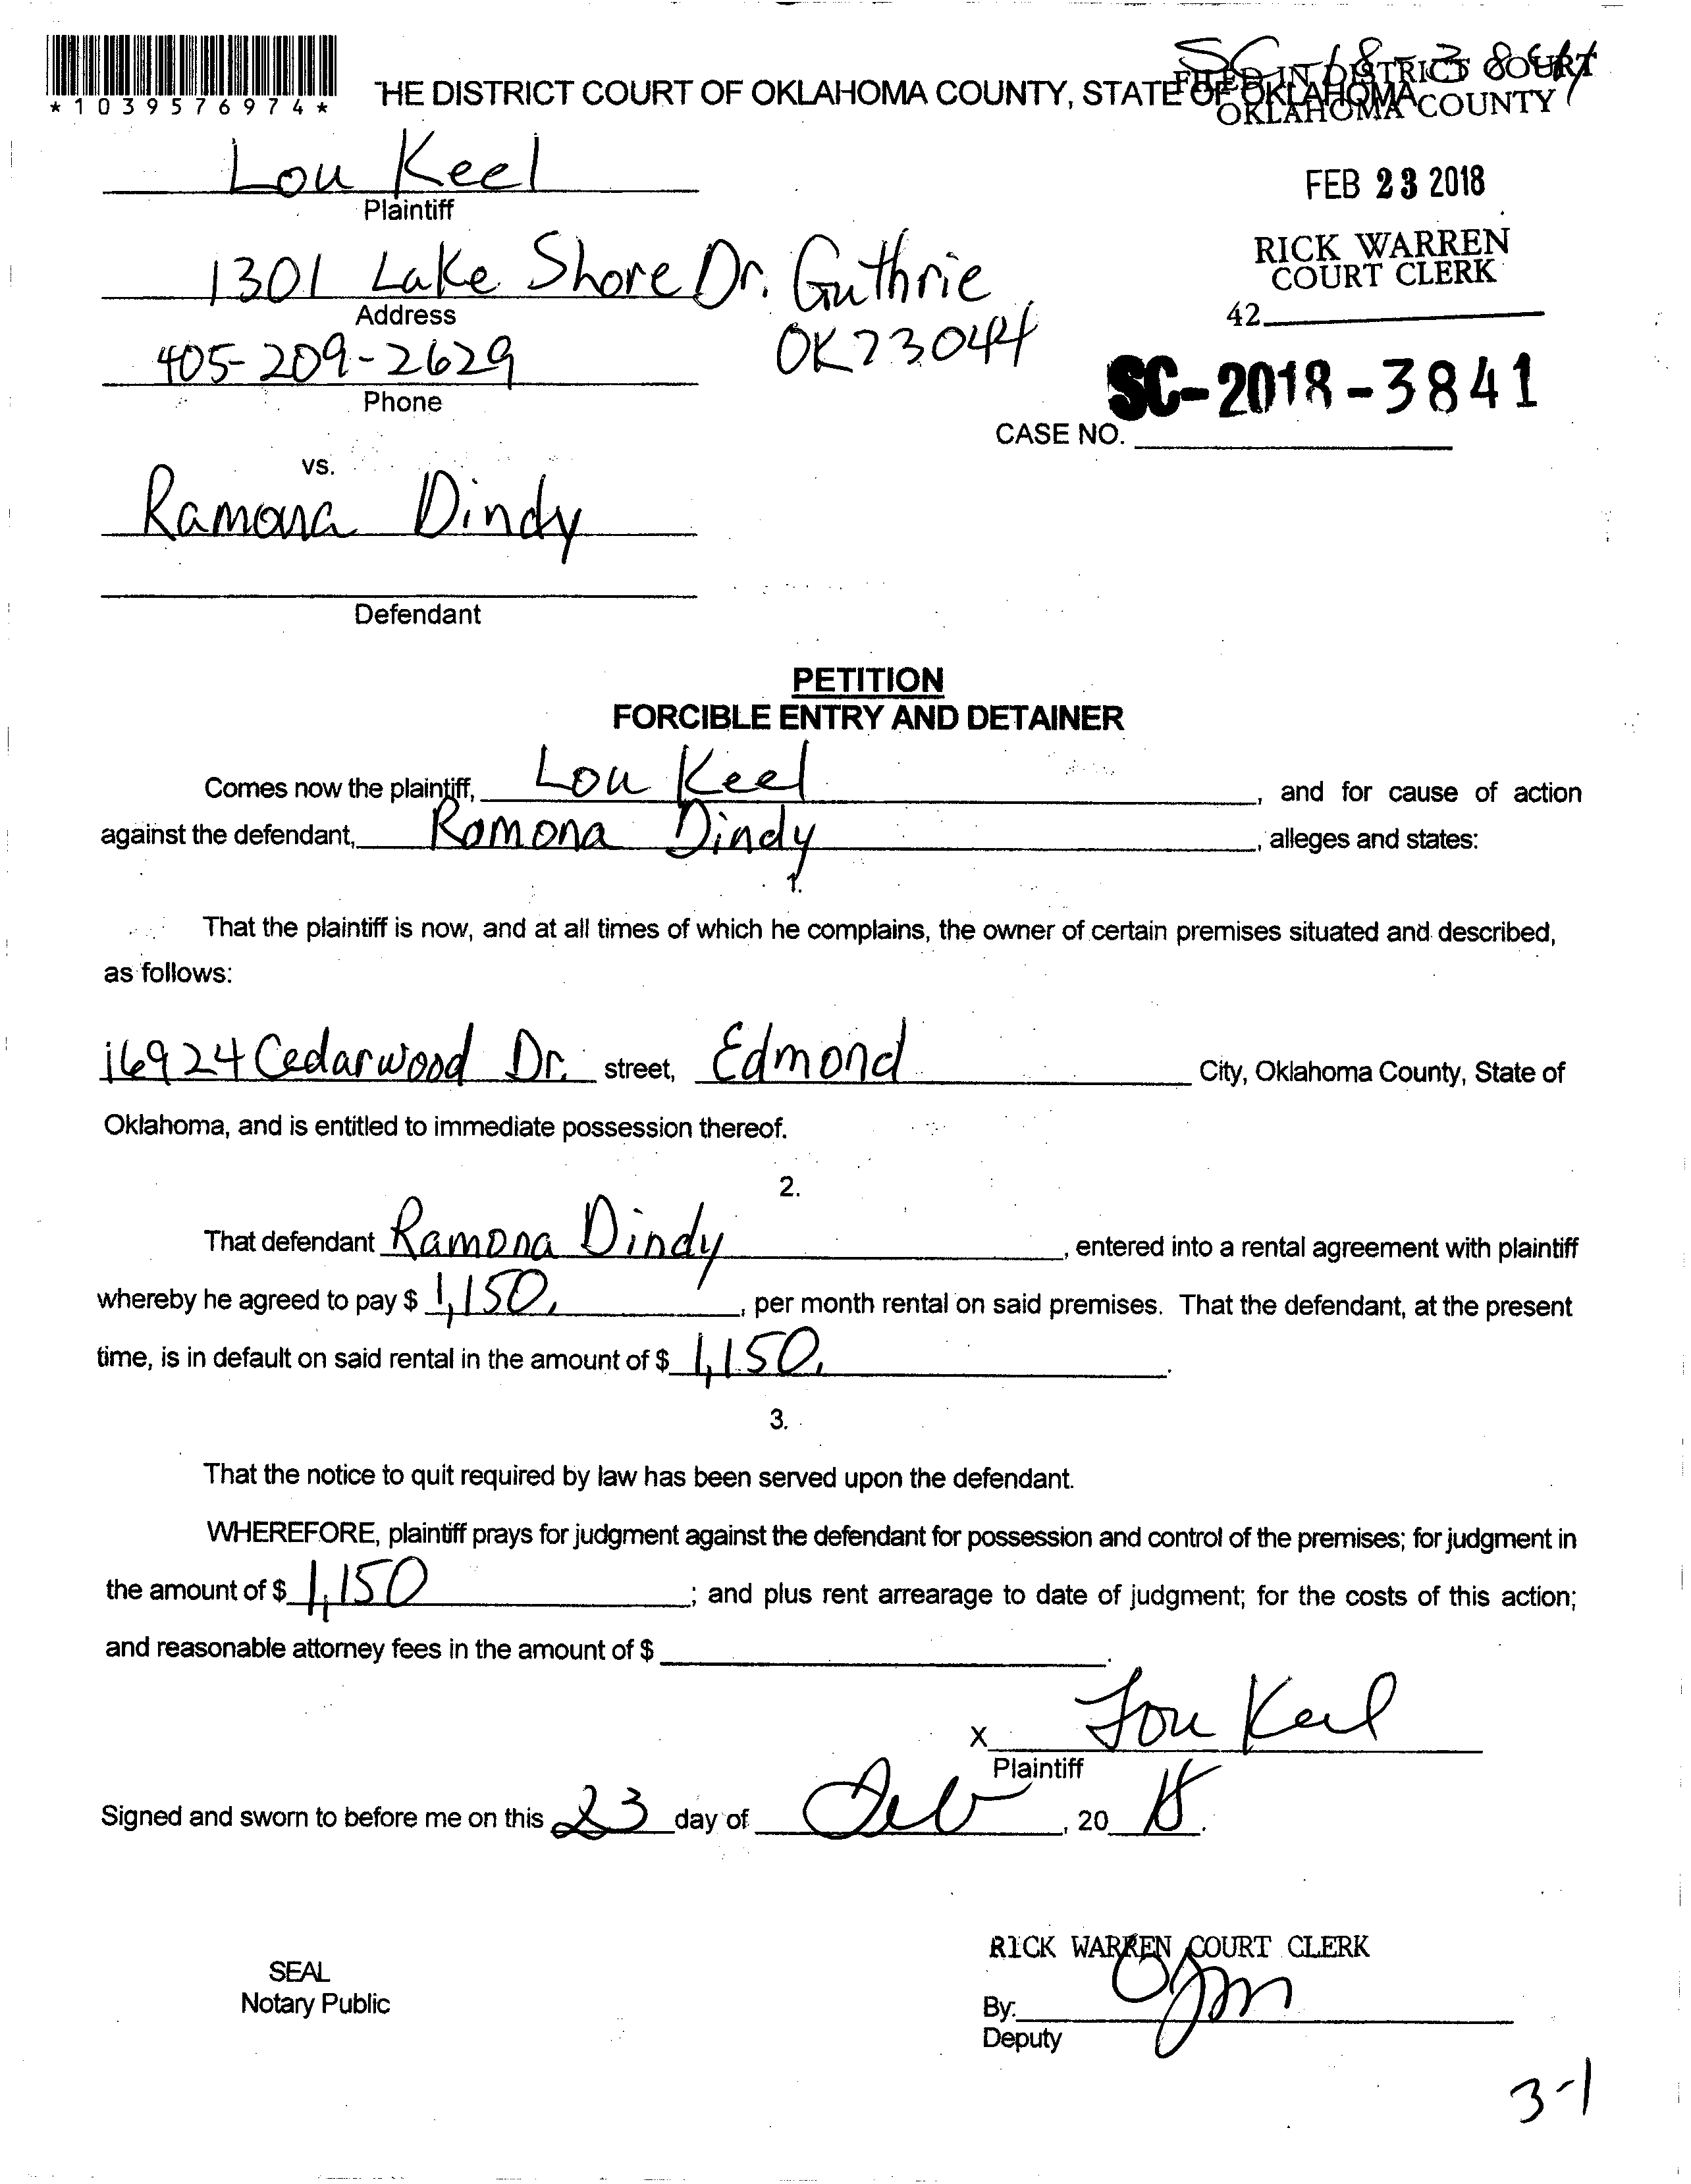 *1039576974*
HE DISTRICT COURT OF OKLAHOMA COUNTY, STATE OF OKLAHOMA
FILED IN DISTRICT COURT
OKLAHOMA COUNTY
Lou Keel
Plaintiff
FEB 23 2018
RICK WARREN
COURT CLERK
1301 Lake Shore Dr. Guthrie
OK 73044
Address
42
405-209-2629
Phone
SC-2018-3841
CASE NO.
vs.
Ramona Dindy
Defendant
PETITION
FORCIBLE ENTRY AND DETAINER
Comes now the plaintiff, Lou Keel, and for cause of action
against the defendant, Ramona Dindy, alleges and states:
1.
That the plaintiff is now, and at all times of which he complains, the owner of certain premises situated and described,
as follows:
16924 Cedarwood Dr. street, Edmond City, Oklahoma County, State of
Oklahoma, and is entitled to immediate possession thereof.
2.
That defendant Ramona Dindy, entered into a rental agreement with plaintiff
whereby he agreed to pay $ 1,150, per month rental on said premises. That the defendant, at the present
time, is in default on said rental in the amount of $ 1,150.
3.
That the notice to quit required by law has been served upon the defendant.
WHEREFORE, plaintiff prays for judgment against the defendant for possession and control of the premises; for judgment in
the amount of $ 1,150; and plus rent arrearage to date of judgment; for the costs of this action;
and reasonable attorney fees in the amount of $ .
x Lou Keel
Plaintiff
Signed and sworn to before me on this 23 day of Feb, 20 18.
RICK WARREN COURT CLERK
SEAL
Notary Public
By:
Deputy
3-1